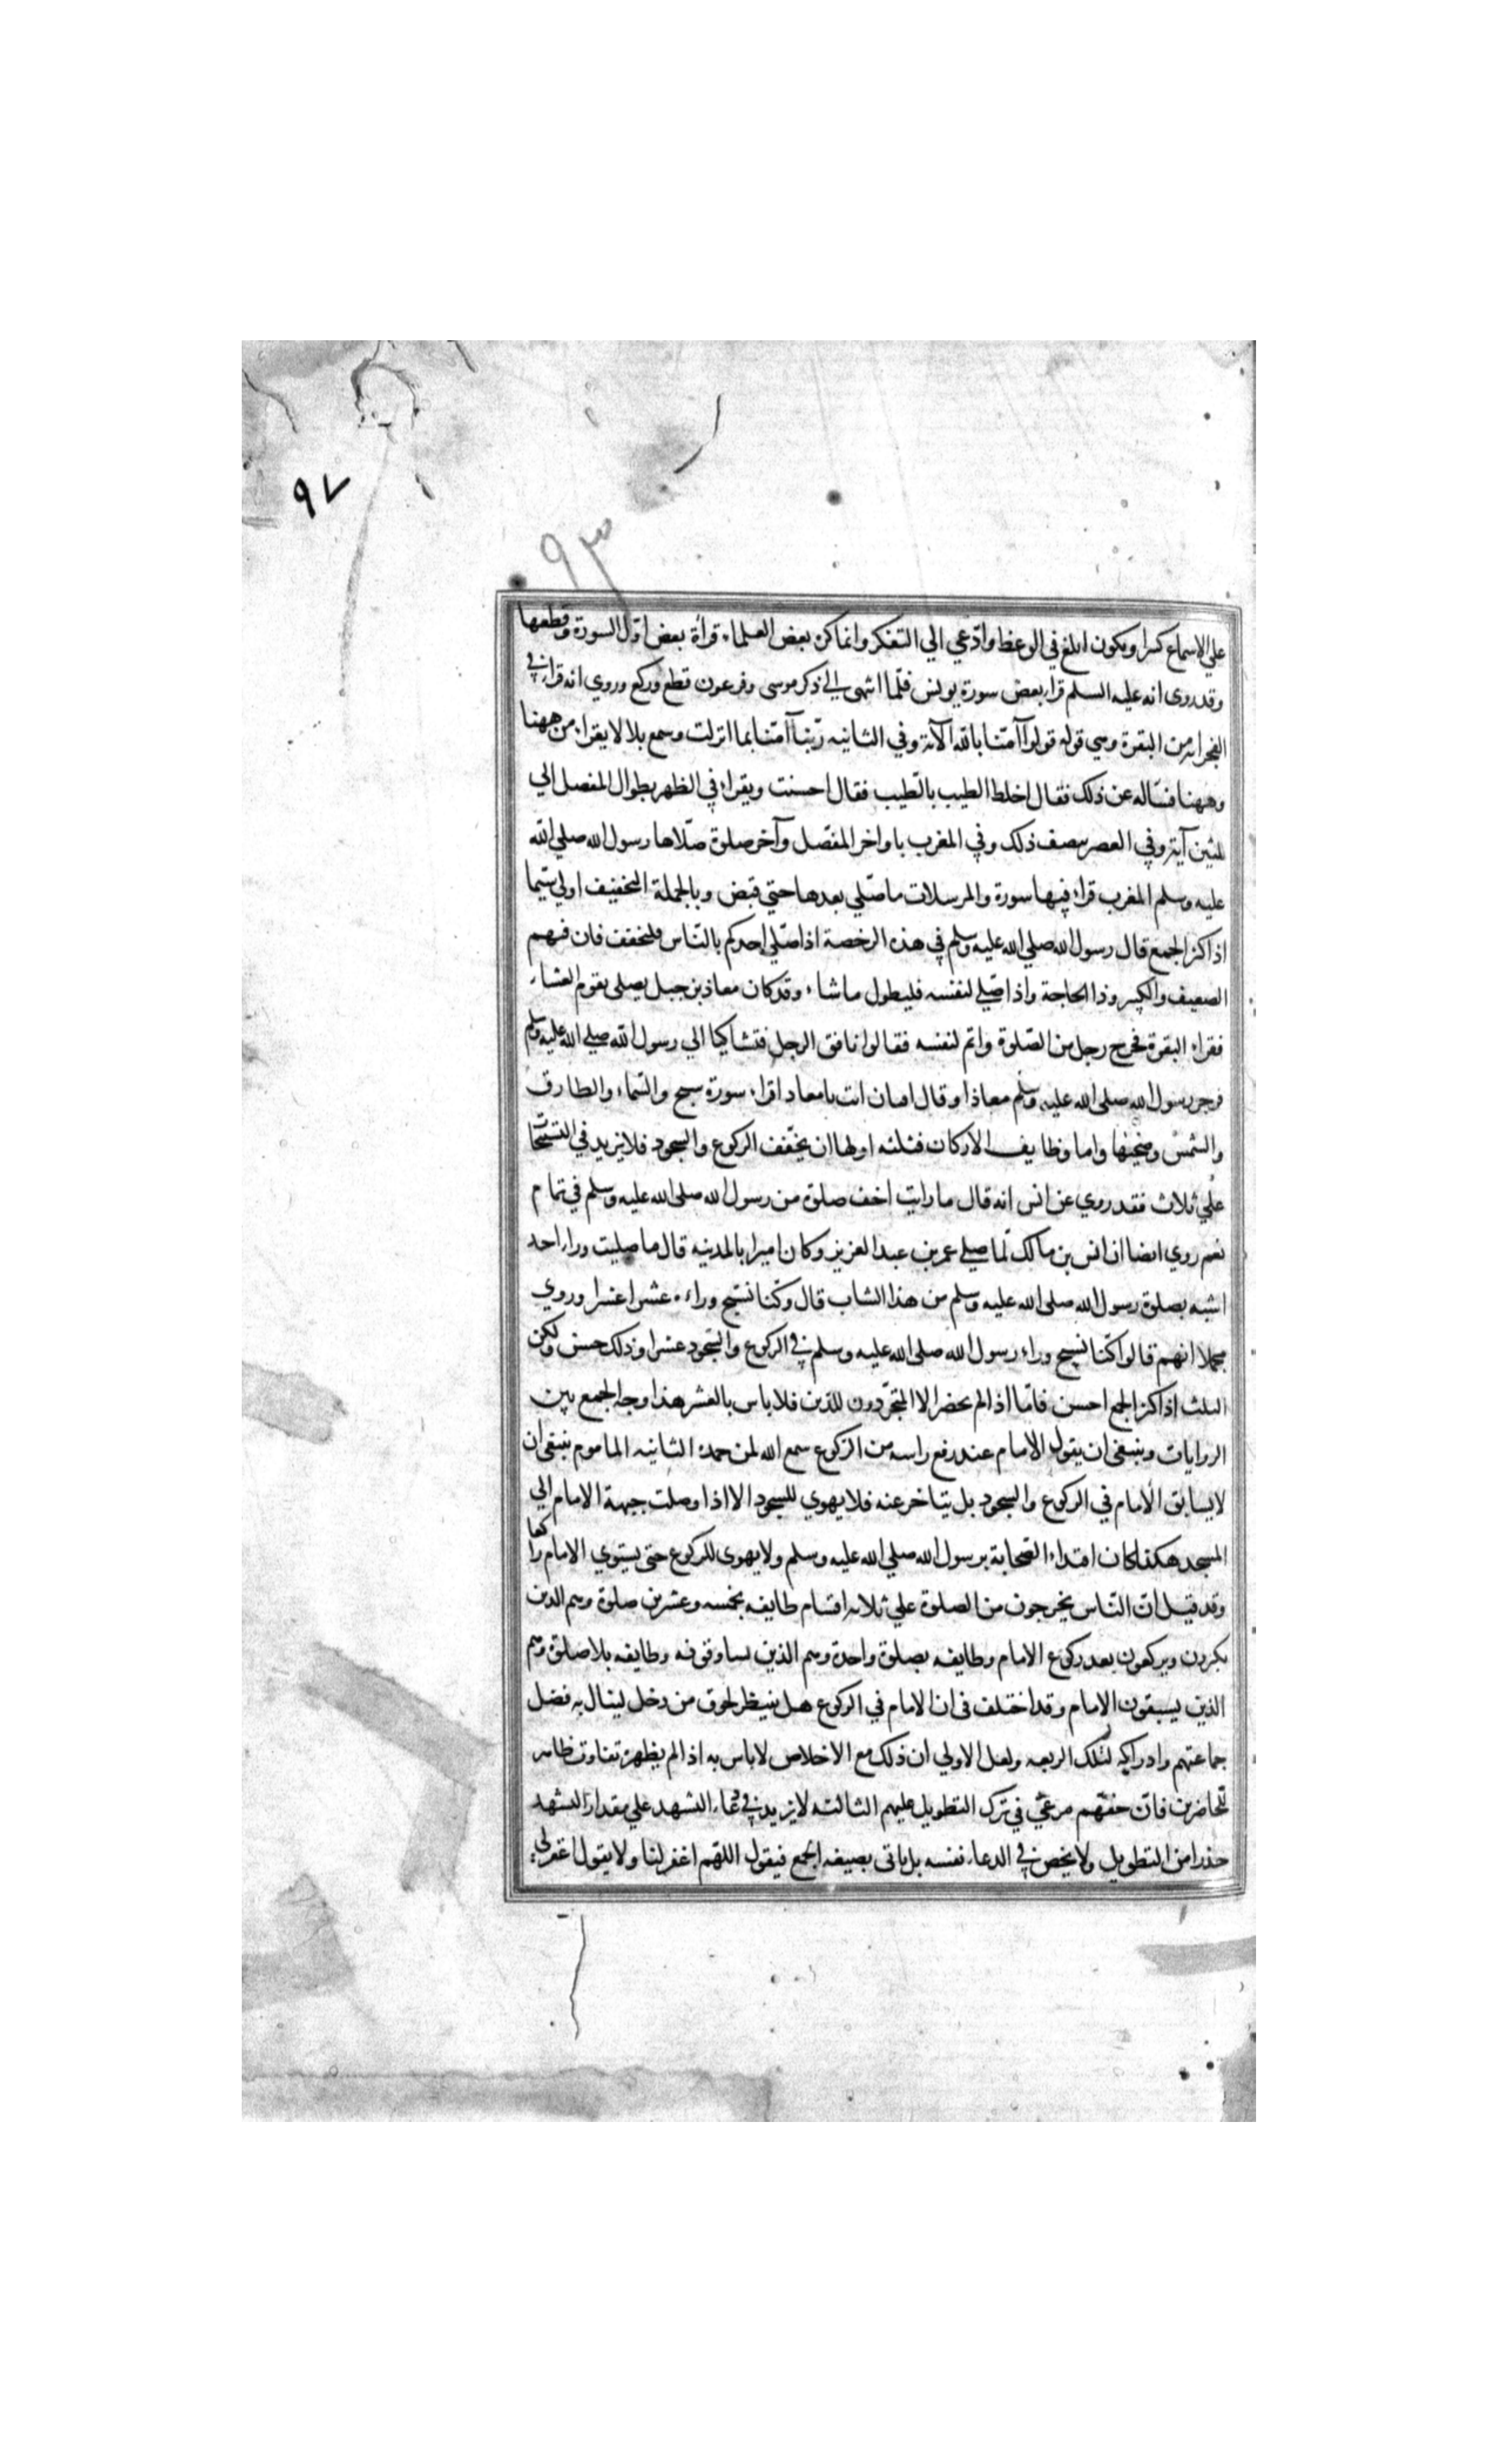 ٩٧
٩٣
علي الاسماع كسرا ويكون ابلغ في الوعظ وادعي الي التفكر وانما كن بعض العلماء قراة بعض اول السورة وقطعها
وقد روي انه عليه السلم قراء بعض سورة يونس فلما انتهي الي ذكر موسى وفرعون قطع وركع وروي انه قراء في
الفجر اية من البقرة وهي قوله قولوا آمنا بالله الآية وفي الثانيه ربنا آمنا بما انزلت وسمع بلالا يقراء من ههنا
وههنا فساله عن ذلك فقال اخلط الطيب بالطيب فقال احسنت ويقراء في الظهر بطوال المفصل الي
ثلثين آية وفي العصر بنصف ذلك وفي المغرب باواخر المفصل وآخر صلوة صلاها رسول الله صلي الله
عليه وسلم المغرب قراء فيها سورة والمرسلات ما صلي بعدها حتي قبض وبالجملة التخفيف اولي سيما
اذا كثر الجمع قال رسول الله صلي الله عليه وسلم في هذه الرخصة اذا صلي احدكم بالناس فليخفف فان فيهم
الضعيف والكبير وذا الحاجة واذا صلي لنفسه فليطول ما شاء وقد كان معاذ بن جبل يصلي بقوم العشاء
فقراء البقرة فخرج رجل من الصلوة واتم لنفسه فقالوا نافق الرجل فتشاكيا الي رسول الله صلي الله عليه وسلم
فزجر رسول الله صلي الله عليه وسلم معاذا وقال افتان انت يا معاذ اقراء سورة سبح والسماء والطارق
والشمس وضحيها واما وظايف الاركان فثلثه اولها ان يخفف الركوع والسجود فلا يزيد في التسبيحات
علي ثلاث فقد روي عن انس انه قال ما رايت اخف صلوة من رسول الله صلي الله عليه وسلم في تمام
نعم روي ايضا ان انس بن مالك لما صلي عمر بن عبد العزيز وكان اميرا بالمدينه قال ما صليت وراء احد
اشبه بصلوة رسول الله صلي الله عليه وسلم من هذا الشاب قال وكنا نسبح وراءه عشرا عشرا وروي
مجملا انهم قالوا كنا نسبح وراء رسول الله صلي الله عليه وسلم في الركوع والسجود عشرا وذلك حسن ولكن
الثلث اذا كثر الجمع احسن فاما اذا لم يحضر الا المتجردون للدين فلا باس بالعشر هذا وجه الجمع بين
الروايات وينبغي ان يقول الامام عند رفع راسه من الركوع سمع الله لمن حمده الثانيه الماموم ينبغي ان
لا يسابق الامام في الركوع والسجود بل يتاخر عنه فلا يهوي للسجود الا اذا وصلت جبهة الامام الي
المسجد هكذا كان اقتداء الصحابة برسول الله صلي الله عليه وسلم ولا يهوي للركوع حتي يستوي الامام راكعا
وقد قيل ان الناس يخرجون من الصلوة علي ثلاثه اقسام طايفه بخمسه وعشرين صلوة وهم الذين
يكبرون ويركعون بعد ركوع الامام وطايفه بصلوة واحدة وهم الذين يساوقونه وطايفه بلا صلوة وهم
الذين يسبقون الامام وقد اختلف في ان الامام في الركوع هل ينتظر لحوق من دخل لينال به فضل
جماعتهم وادراكه لتلك الركعه ولعل الاولي ان ذلك مع الاخلاص لا باس به اذا لم يظهر تفاوت ظاهر
للحاضرين فان حقهم مرعي في ترك التطويل عليهم الثالثه لا يزيد في دعاء التشهد علي مقدار التشهد
حذرا من التطويل ولا يخص في الدعاء نفسه بل ياتي بصيغه الجمع فيقول اللهم اغفر لنا ولا يقول اغفر لي